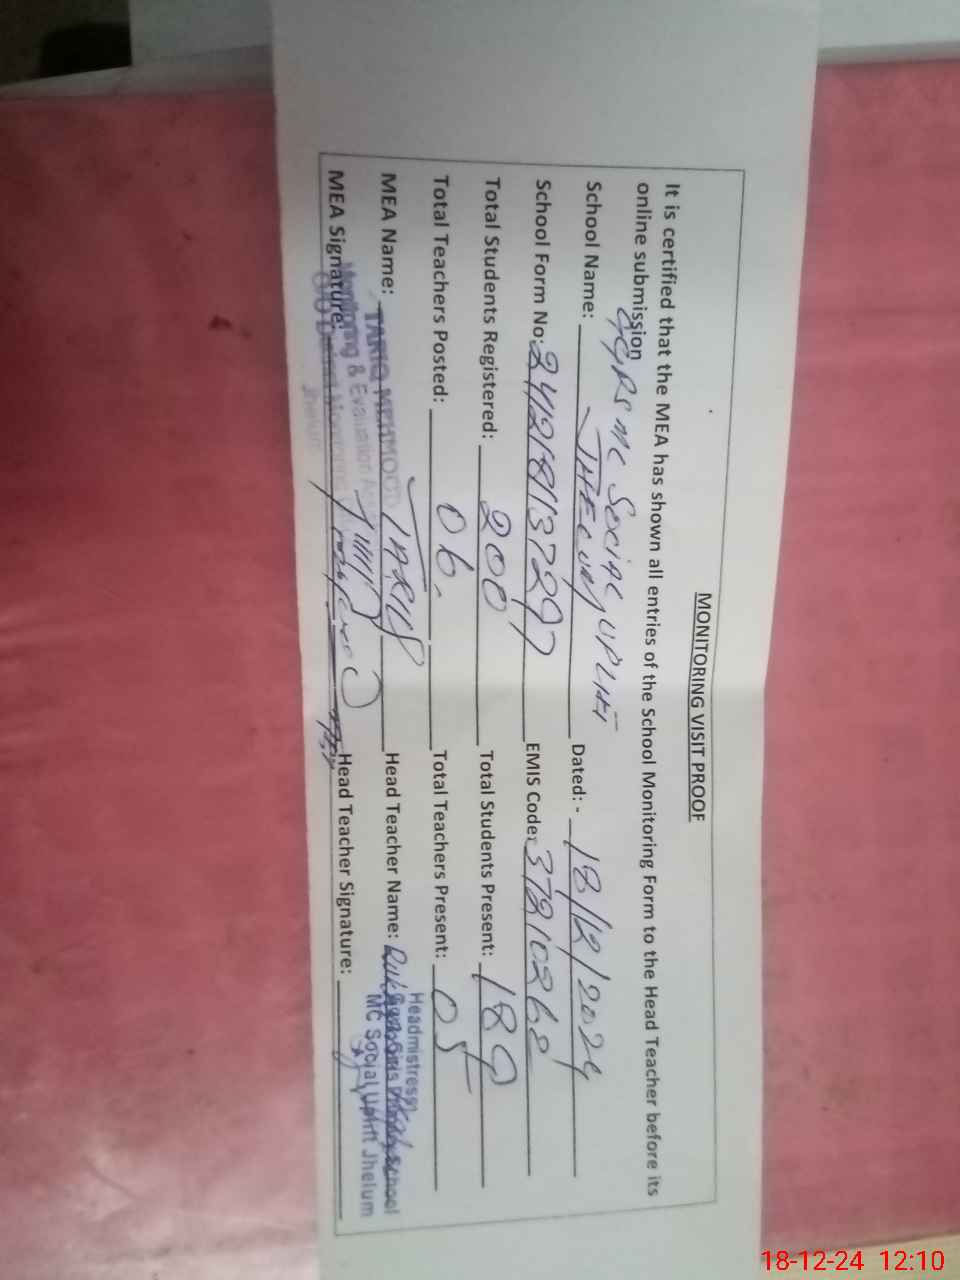 MONITORING VISIT PROOF
It is certified that the MEA has shown all entries of the School Monitoring Form to the Head Teacher before its
online submission
School Name: GGPS MC Social UPLift Dated: - 18/12/2024
JHELUM
School Form No: EMIS Code: 37210268
Total Students Registered: 200 Total Students Present: 189
Total Teachers Posted: 06 Total Teachers Present: 05
MEA Name: TARIQ MEHMOOD TARIQ Head Teacher Name:
Monitoring & Evaluation
Jhelum
MEA Signature: Head Teacher Signature:
Headmistress
School
MC Social Uplift Jhelum
18-12-24 12:10